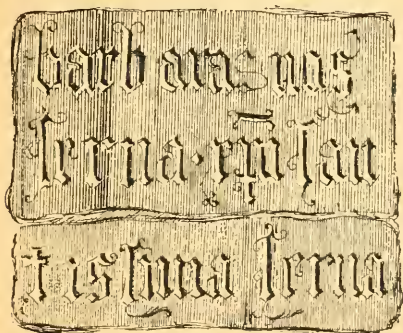 barbaras nos
ſerua·xp̄i ſan
tisſima ſerua